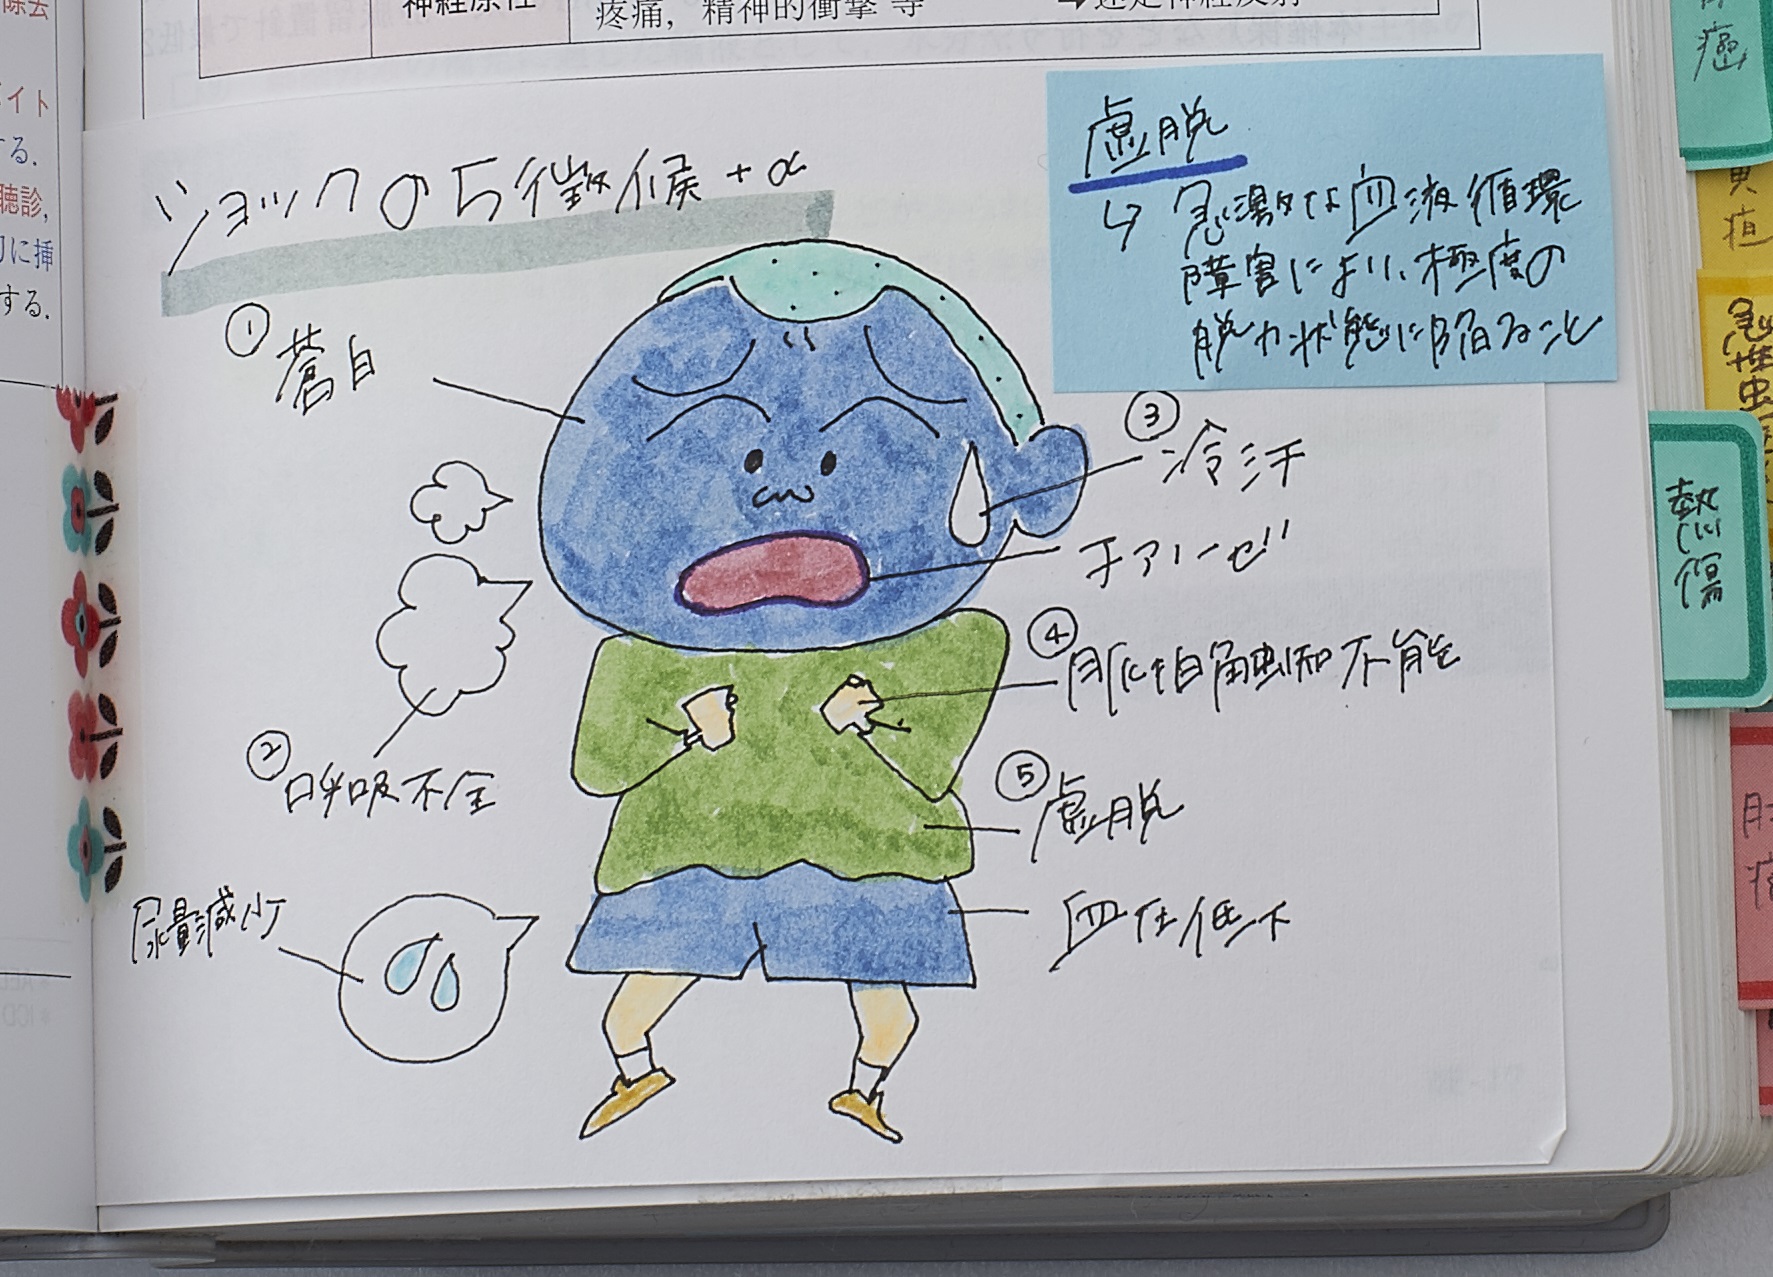 除去
神経原性
疼痛，精神的衝撃 等
イト
する.
聴診,
に挿
する.
ショックの5徴候+α
虚脱
↳ 急激な血液循環
障害により、極度の
脱力状態に陥ること
① 蒼白
③ 冷汗
チアノーゼ
④ 脈拍触知不能
② 呼吸不全
⑤ 虚脱
尿量減少
血圧低下
癌
黄疸
急性虫
熱傷